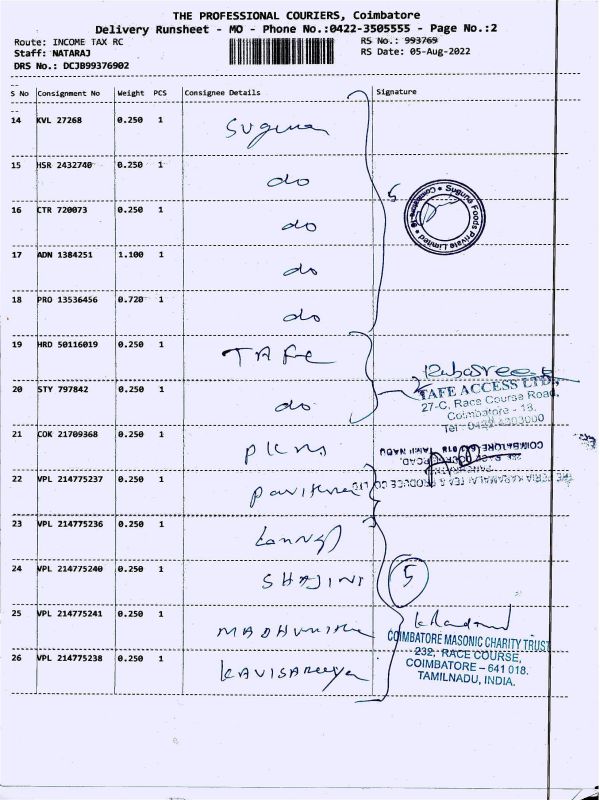 THE PROFESSIONAL COURIERS, Coimbatore
Delivery Runsheet - MO - Phone No.:0422-3505555 - Page No.:2
Route: INCOME TAX RC
RS No.: 993769
Staff: NATARAJ
RS Date: 05-Aug-2022
DRS No.: DCJB99376902
S No Consignment No Weight PCS Consignee Details Signature
14 KVL 27268 0.250 1 Suguna
15 HSR 2432740 0.250 1 do
5
Suguna Foods Private Limited
16 CTR 720073 0.250 1 do
17 ADN 1384251 1.100 1 do
18 PRO 13536456 0.720 1 do
19 HRD 50116019 0.250 1 TAFE
TAFE ACCESS LTD.,
27-C, Race Course Road,
Coimbatore - 18.
20 STY 797842 0.250 1 do
21 COK 21709368 0.250 1
COIMBATORE 641 018 TAMIL NADU
22 VPL 214775237 0.250 1 Pavithra
THE PERIA KARAMALAI TEA & PRODUCE CO LTD
23 VPL 214775236 0.250 1
24 VPL 214775240 0.250 1 SHAJINI
5
25 VPL 214775241 0.250 1
COIMBATORE MASONIC CHARITY TRUST
232, RACE COURSE,
COIMBATORE – 641 018.
TAMILNADU, INDIA.
26 VPL 214775238 0.250 1